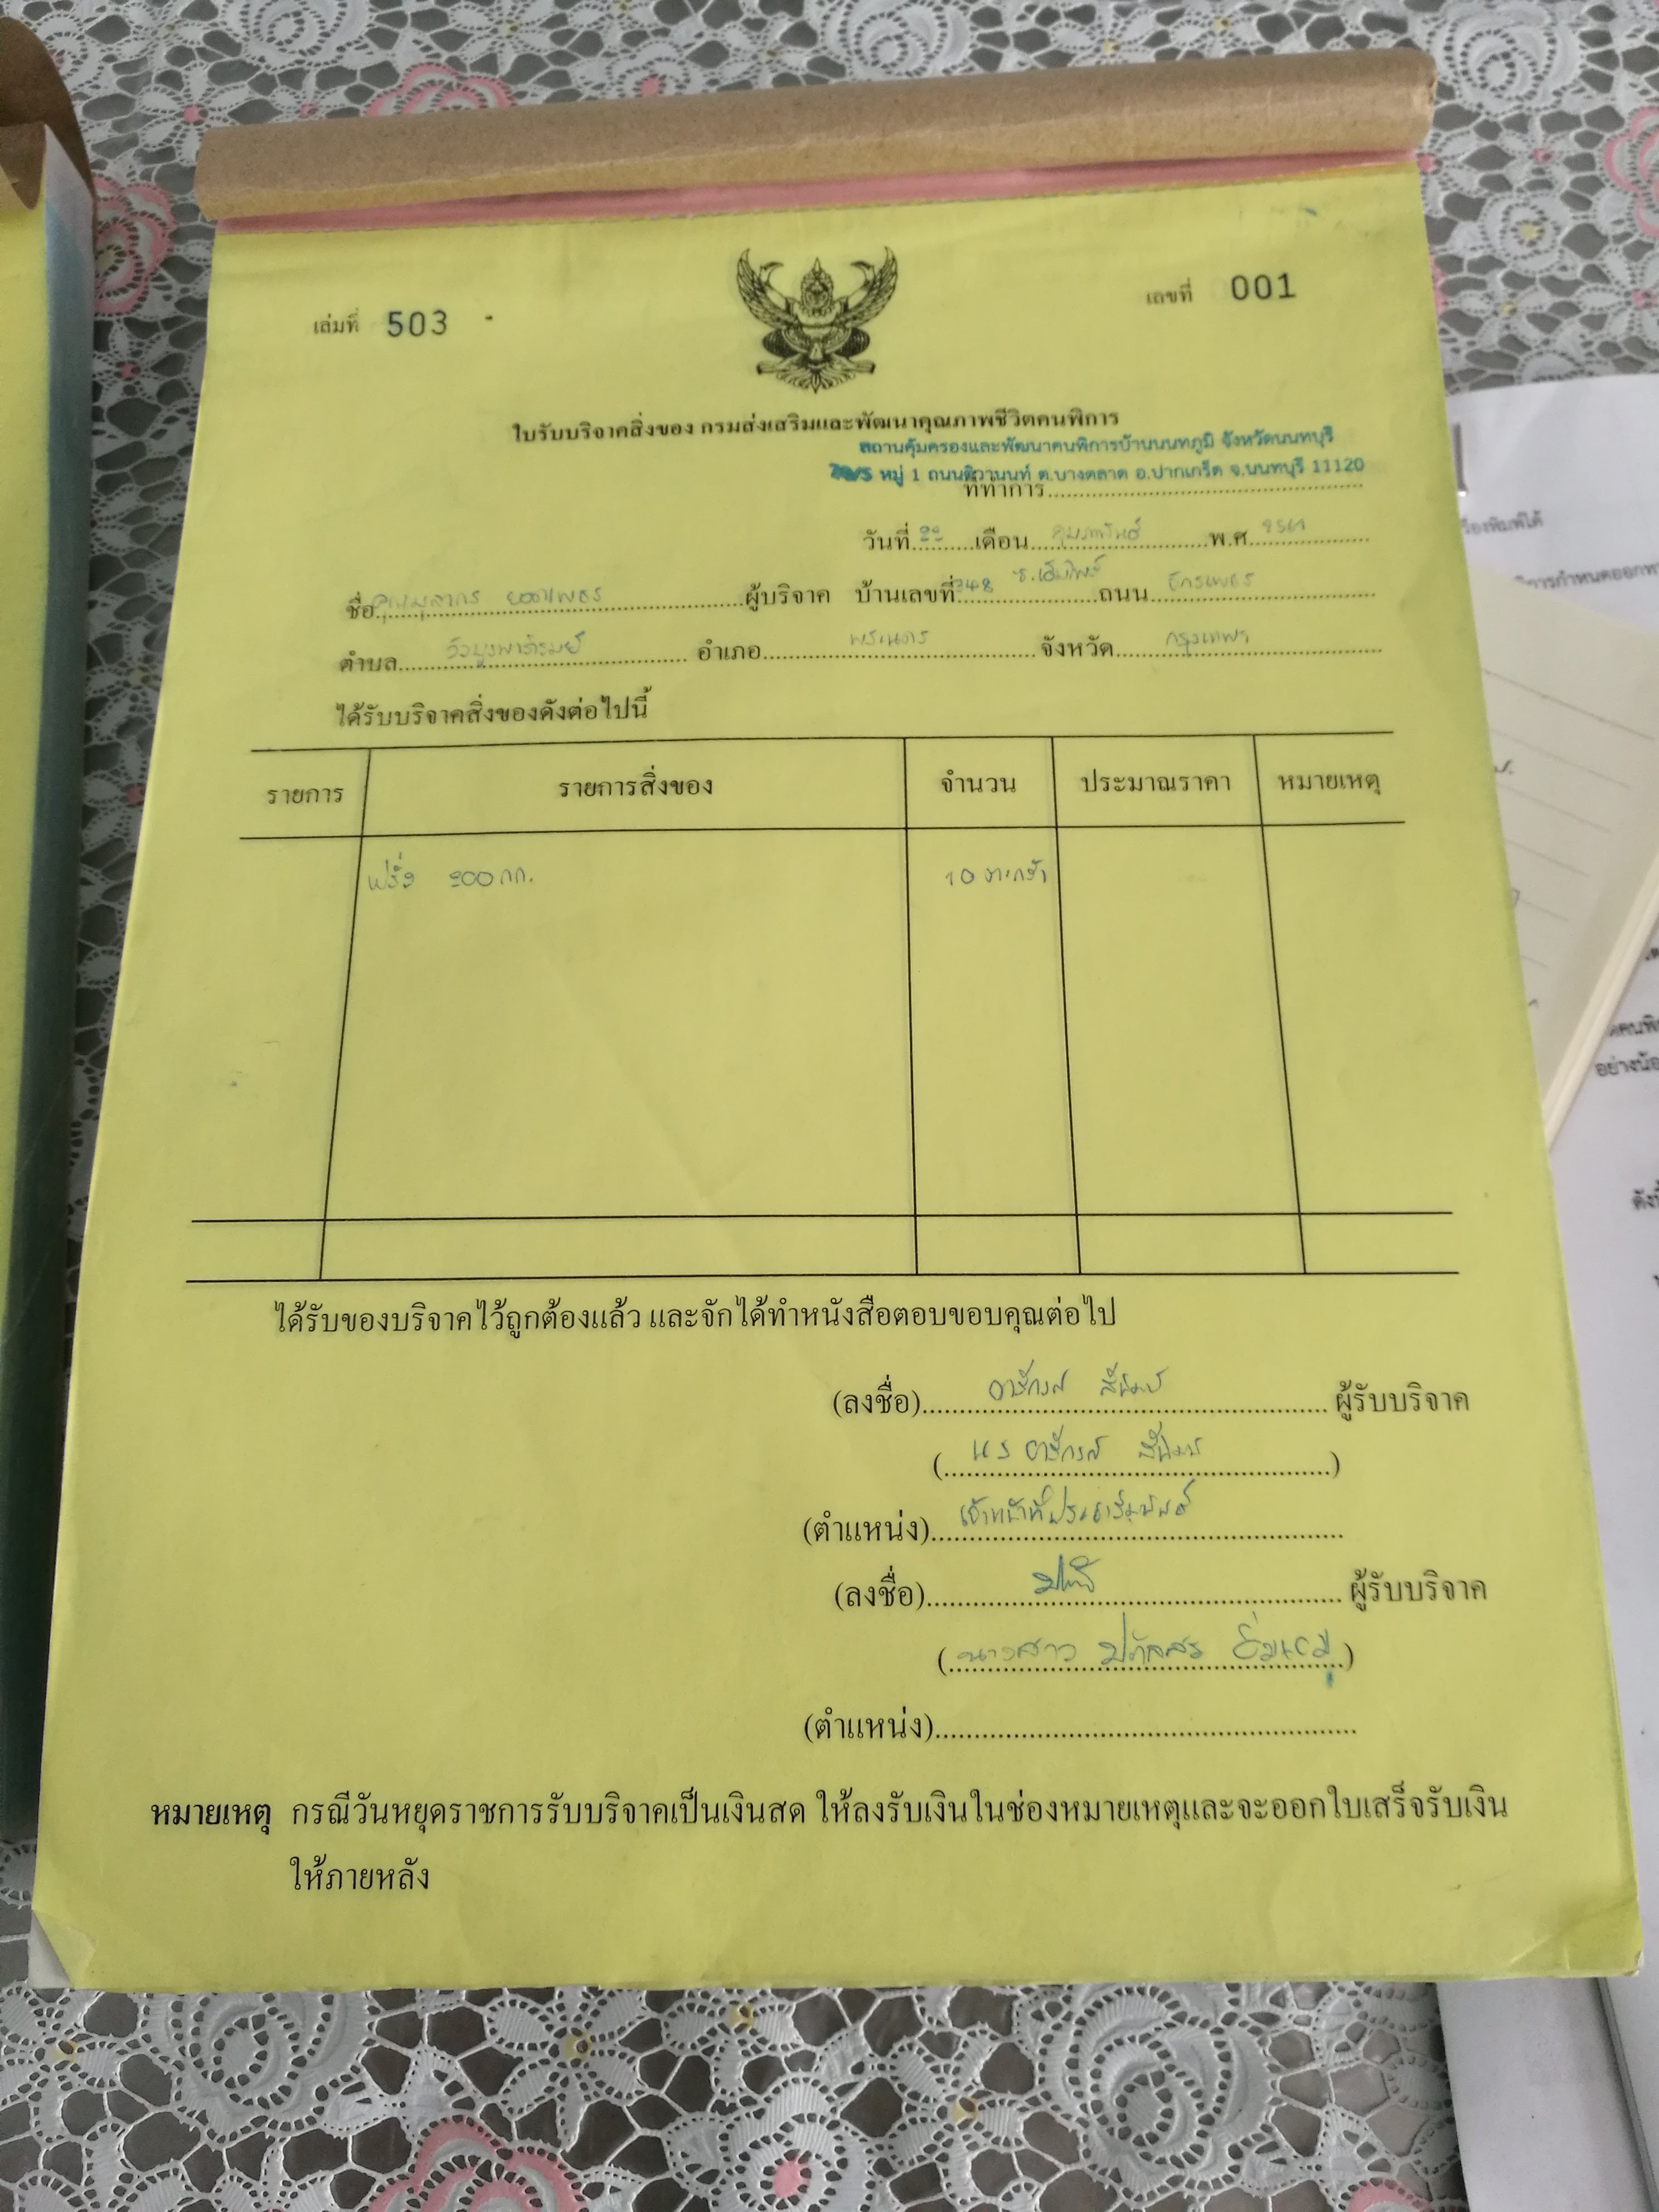 เล่มที่ 503
เลขที่ 001
ใบรับบริจาคสิ่งของ กรมส่งเสริมและพัฒนาคุณภาพชีวิตคนพิการ
สถานคุ้มครองและพัฒนาคนพิการบ้านนนทภูมิ จังหวัดนนทบุรี
หมู่ 1 ถนนติวานนท์ ต.บางตลาด อ.ปากเกร็ด จ.นนทบุรี 11120
ที่ทำการ
วันที่ เดือน กุมภาพันธ์ พ.ศ.
ชื่อ ผู้บริจาค บ้านเลขที่ 248 ถนน จักรเพชร
ตำบล วังบูรพาภิรมย์ อำเภอ พระนคร จังหวัด กรุงเทพฯ
ได้รับบริจาคสิ่งของดังต่อไปนี้
รายการ รายการสิ่งของ จำนวน ประมาณราคา หมายเหตุ
ฝรั่ง 200 กก. 10 ตะกร้า
ได้รับของบริจาคไว้ถูกต้องแล้ว และจักได้ทำหนังสือตอบขอบคุณต่อไป
(ลงชื่อ) ผู้รับบริจาค
(ตำแหน่ง) เจ้าหน้าที่ประชาสัมพันธ์
(ลงชื่อ) ผู้รับบริจาค
(นางสาว )
(ตำแหน่ง)
หมายเหตุ กรณีวันหยุดราชการรับบริจาคเป็นเงินสด ให้ลงรับเงินในช่องหมายเหตุและจะออกใบเสร็จรับเงิน
ให้ภายหลัง